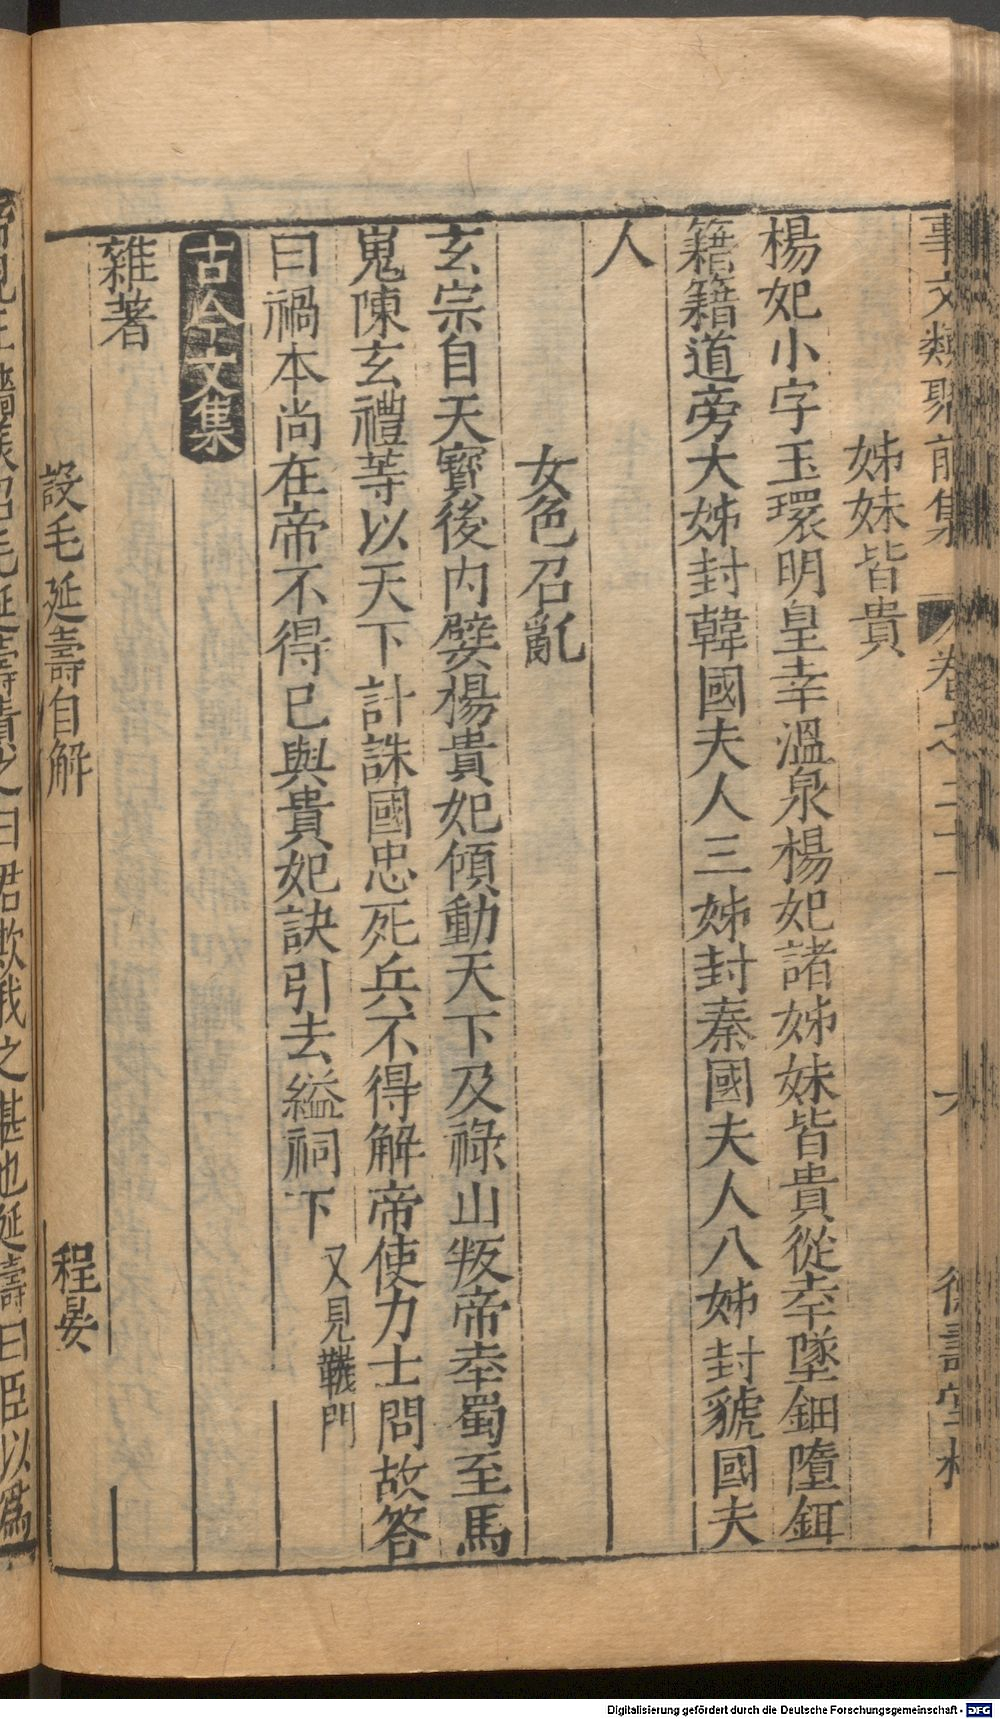 事文類聚前集 卷之二十一 六 德壽堂梓
姊妹皆貴
楊妃小字玉環明皇幸溫泉楊妃諸姊妹皆貴從幸墜鈿墮鉺
籍籍道旁大姊封韓國夫人三姊封秦國夫人八姊封虢國夫
人
女色召亂
玄宗自天寶後內嬖楊貴妃傾動天下及祿山叛帝幸蜀至馬
嵬陳玄禮等以天下計誅國忠死兵不得解帝使力士問故答
曰禍本尚在帝不得已與貴妃訣引去縊祠下又見譏門
古今文集
雜著
設毛延壽自解 程晏
毛延壽責之曰君欺我之甚也延壽曰臣以爲
Digitalisierung gefördert durch die Deutsche Forschungsgemeinschaft - DFG